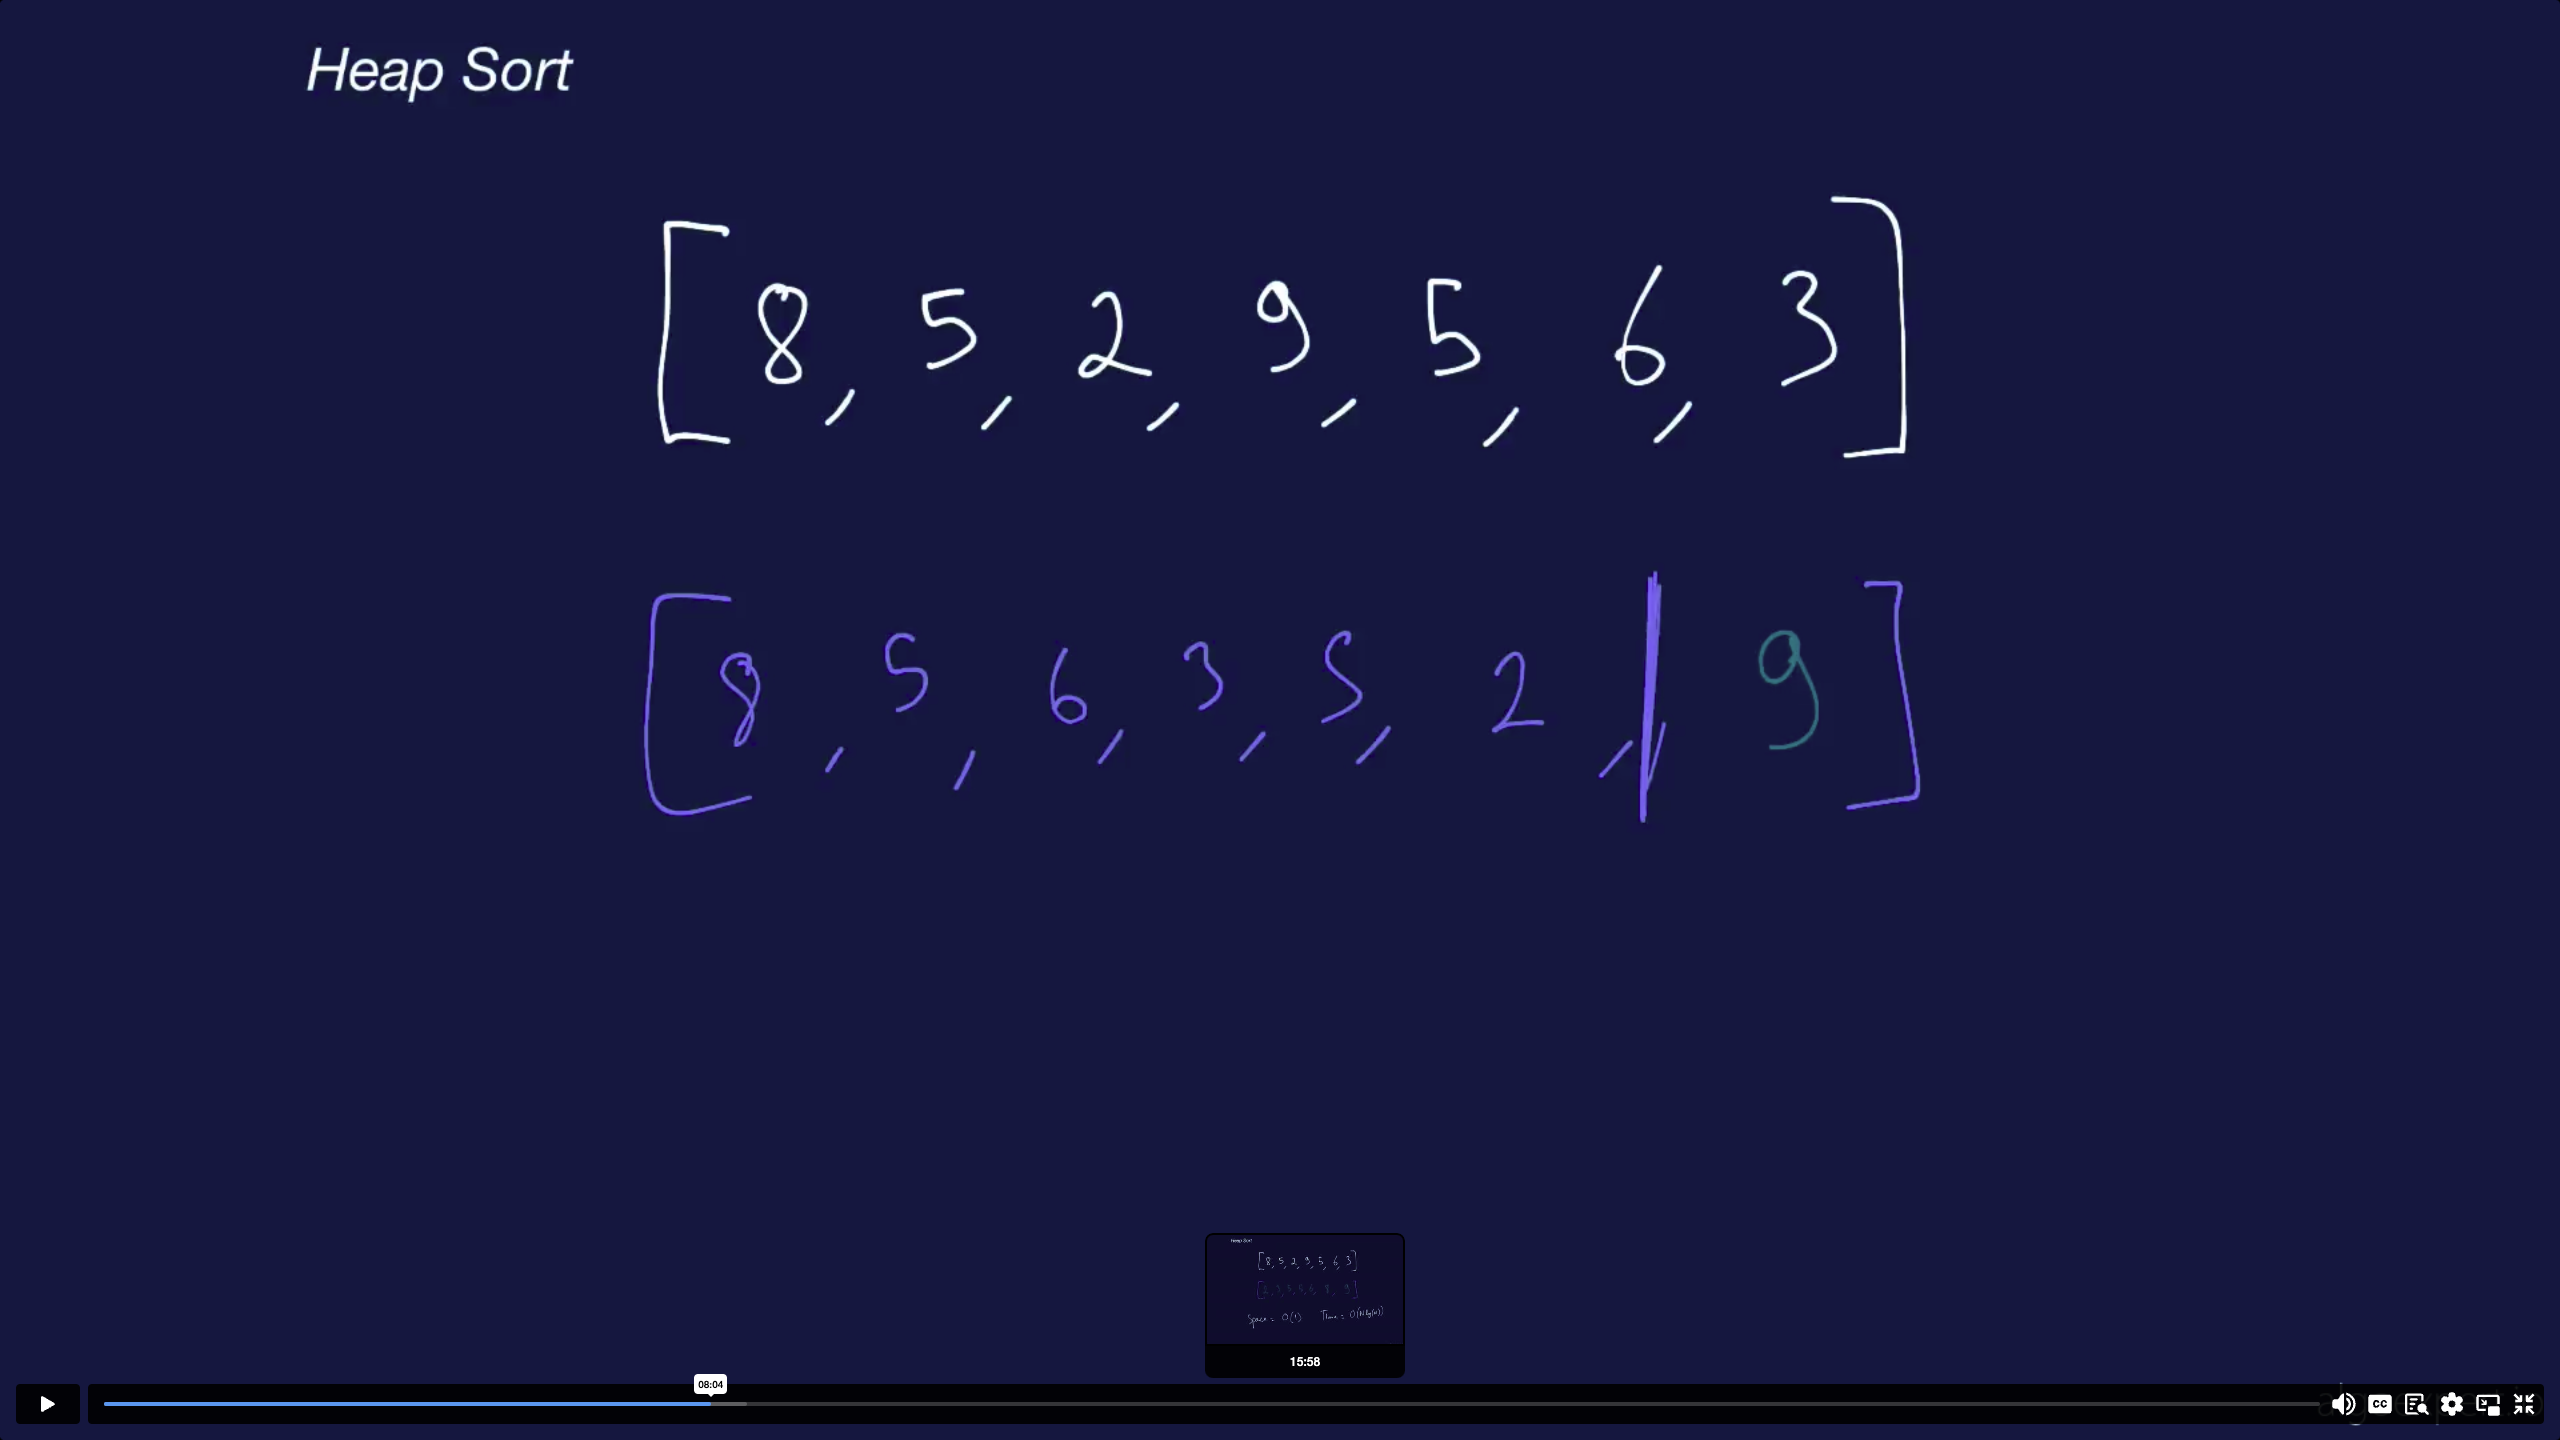 Heap Sort
[8, 5, 2, 9, 5, 6, 3]
[8, 5, 6, 3, 5, 2, | 9]
Heap Sort
[8, 5, 2, 9, 5, 6, 3]
Space = O(1) Time = O(N log(n))
15:58
08:04
CC